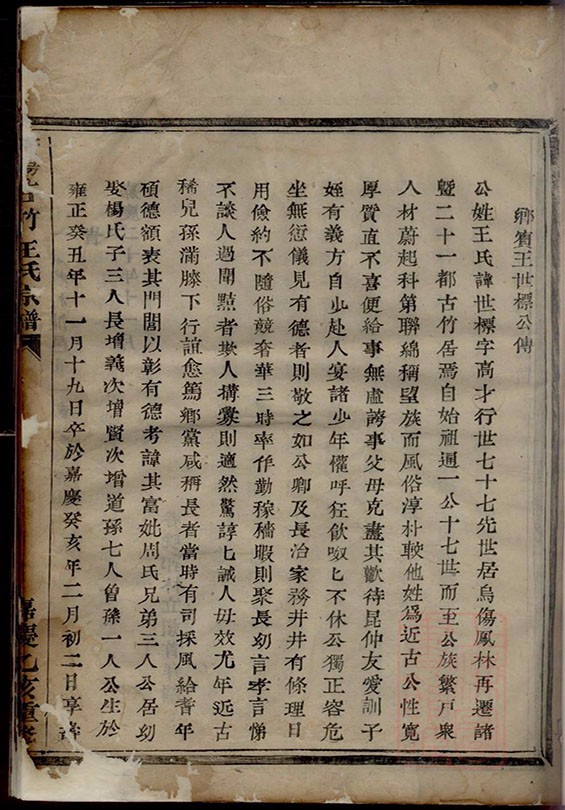 鄉賓王世標公傳
公姓王氏諱世標字高才行世七十七先世居烏傷鳳林再遷諸
暨二十一都古竹居焉自始祖迥一公十七世而至公族繁戶衆
人材蔚起科第聯綿稱望族而風俗淳朴較他姓爲近古公性寬
厚質直不喜便給事無虛誇事父母克盡其歡待昆仲友愛訓子
姪有義方自少赴人宴諸少年懽呼狂飲呶匕不休公獨正容危
坐無愆儀見有德者則敬之如公卿及長治家務井井有條理日
用儉約不隨俗競奢華三時率作勤稼穡暇則聚長幼言孝言悌
不談人過聞黠者欺人搆釁則適然驚諄匕誡人毋效尤年近古
稀兒孫滿膝下行誼愈篤鄉黨咸稱長者當時有司採風給耆年
碩德額表其門閭以彰有德考諱其富妣周氏兄弟三人公居幼
娶楊氏子三人長增義次增賢次增道孫七人曾孫一人公生於
雍正癸丑年十一月十九日卒於嘉慶癸亥年二月初二日享
古竹王氏宗譜
嘉慶乙亥重修